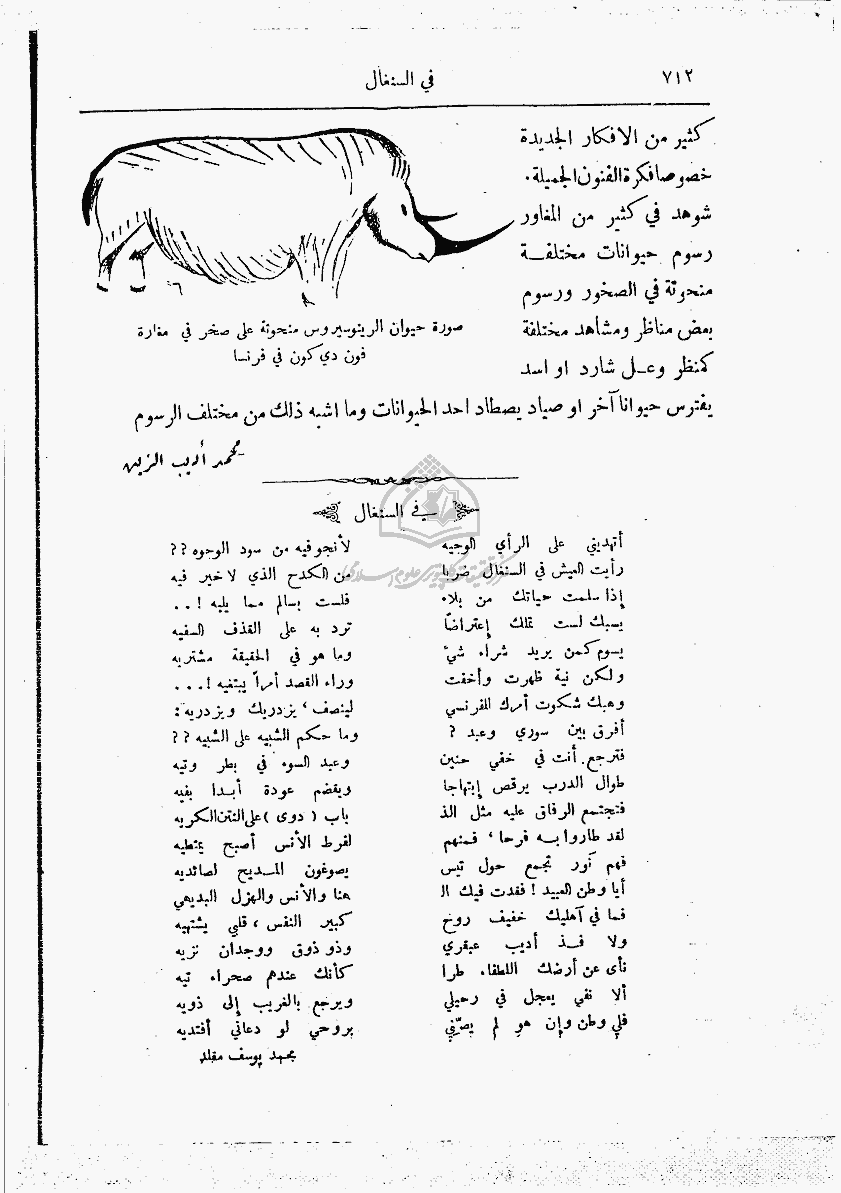 ٧١٢
في السنغال
كثير من الافكار الجديدة
خصوصا فكرة الفنون الجميلة.
شوهد في كثير من المغاور
رسوم حيوانات مختلفـة
منحوتة في الصخور ورسوم
بعض مناظر ومشاهد مختلفة
كمنظر وعـل شارد او اسد
صورة حيوان الرينوسيروس منحوتة على صخر في مغارة
فون دي كون في فرنسا
يفترس حيوانا آخر او صياد يصطاد احد الحيوانات وما اشبه ذلك من مختلف الرسوم
محمد أديب الزين
في السنغال
أتهديني على الرأي الوجيه لأنجو فيه من سود الوجوه ؟؟
رأيت العيش في السنغال ضربا من الكدح الذي لا خير فيه
إذا سلمت حياتك من بلاء فلست بسالم مما يليه !..
يسبك لست تملك إعتراضاً ترد به على القذف السفيه
يسوم كمن يريد شراء شيء وما هو في الحقيقة مشتريه
ولكن نية ظهرت وأخفت وراء القصد أمراً يبتغيه !...
وهبك شكوت أمرك للفرنسي لينصف، يزدريك ويزدريه:
أفرق بين سوري وعبد ؟ وما حكم الشبيه على الشبيه ؟؟
فترجع. أنت في خفي حنين وعبد السوء في بطر وتيه
طوال الدرب يرقص إبتهاجا ويقضم عودة أبـدا بفيه
فتجتمع الرفاق عليه مثل الذ باب ( دوى ) على النتن الكريه
لقد طاروا بـه فرحا، فمنهم لفرط الأنس أصبح يمتطيه
فهم نور تجمع حول تيس يصوغون المـديح لصائديه
أيا وطن العبيد ! فقدت فيك الـ هنا والأنس والهزل البديهي
فما في آهليك خفيف روح كبير النفس، قلبي يشتهيه
ولا فـذ أديب عبقري وذو ذوق ووجدان نزيه
نأى عن أرضك اللطفاء طرا كأنك عندهم صحراء تيه
ألا نفي يعجل في رحيلي ويرجع بالغريب إلى ذويه
فلي وطن وإن هو لم يصنّي بروحي لو دعاني أفتديه
محمد يوسف مقلد